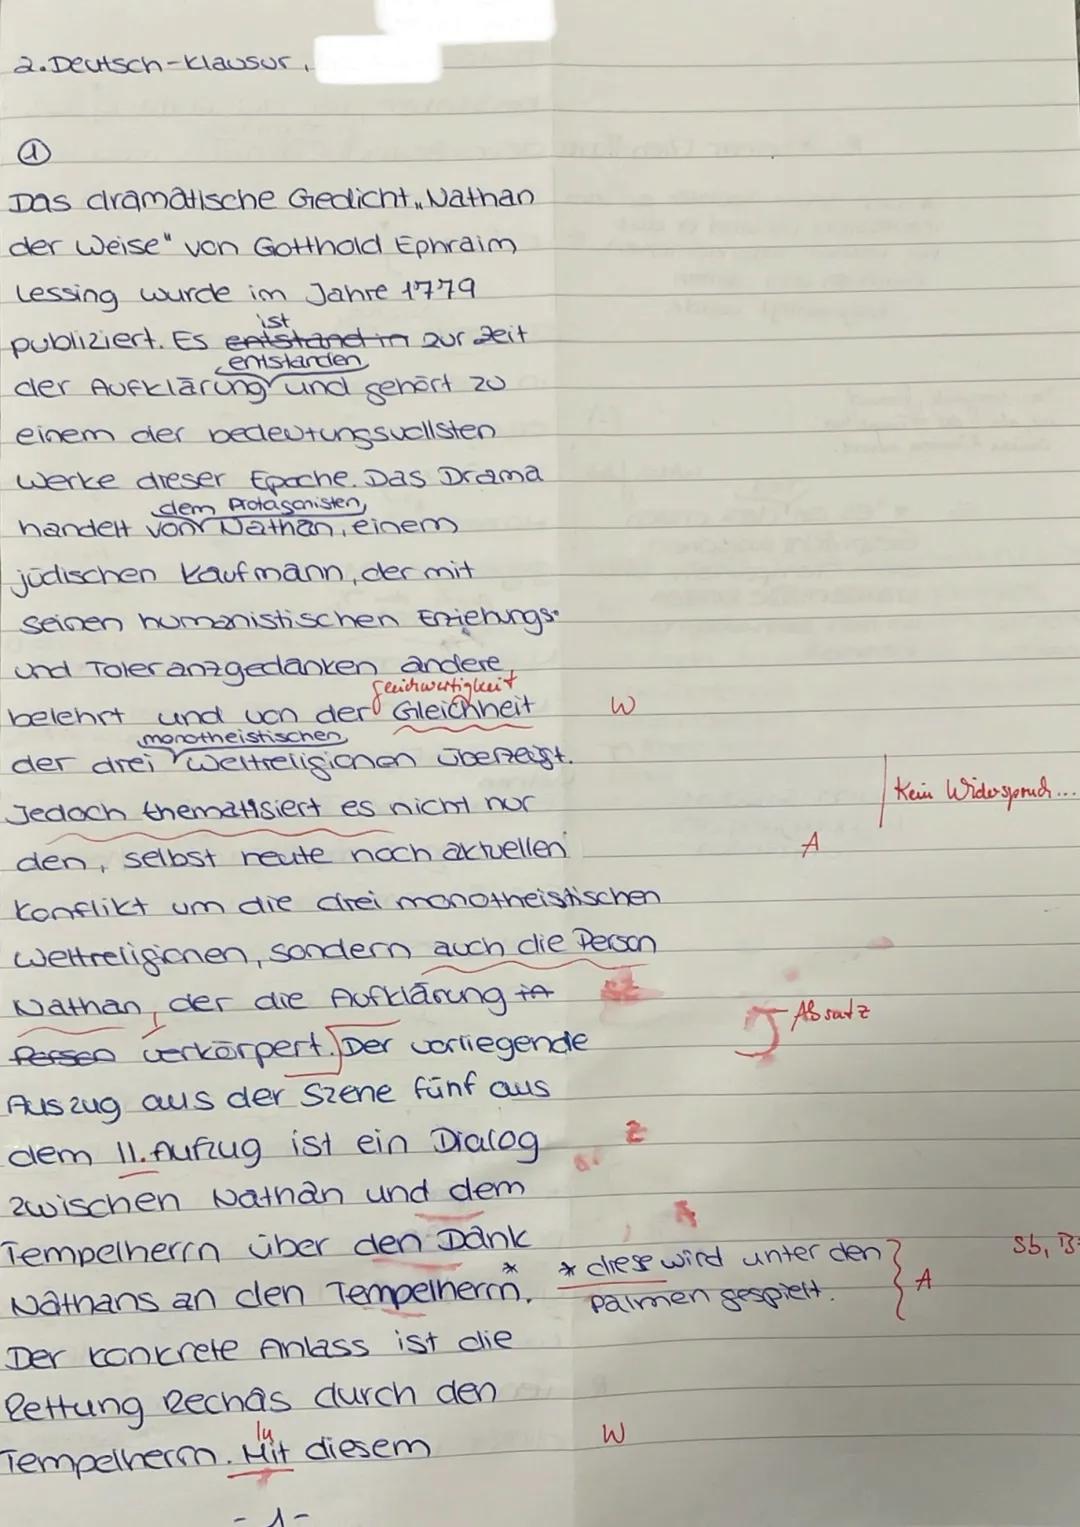 2. Deutsch-Klausur,
①
Das dramatische Gedicht „Nathan
der Weise" von Gotthold Ephraim
Lessing wurde im Jahre 1779
ist
publiziert. Es entstand in zur Zeit
entstanden
der Aufklärung und gehört zu
einem der bedeutungsvollsten
Werke dieser Epoche. Das Drama
dem Protagonisten
handelt von Nathan, einem
jüdischen Kaufmann, der mit
seinen humanistischen Erziehungs-
und Toleranzgedanken andere
Gleichwertigkeit
belehrt und von der Gleichheit W
monotheistischen
der drei Weltreligionen überzeugt.
Jedoch thematisiert es nicht nur Kein Widerspruch...
den, selbst heute noch aktuellen A
Konflikt um die drei monotheistischen
Weltreligionen, sondern auch die Person
Nathan, der die Aufklärung in
Person verkörpert. Der vorliegende Absatz
Auszug aus der Szene fünf aus
dem II. Aufzug ist ein Dialog Z
zwischen Nathan und dem
Tempelherrn über den Dank
Nathans an den Tempelherrn.* * diese wird unter den Sb, B
palmen gespielt. A
Der konkrete Anlass ist die
Rettung Rechas durch den
In
Tempelherrn. Mit diesem W
- 1 -